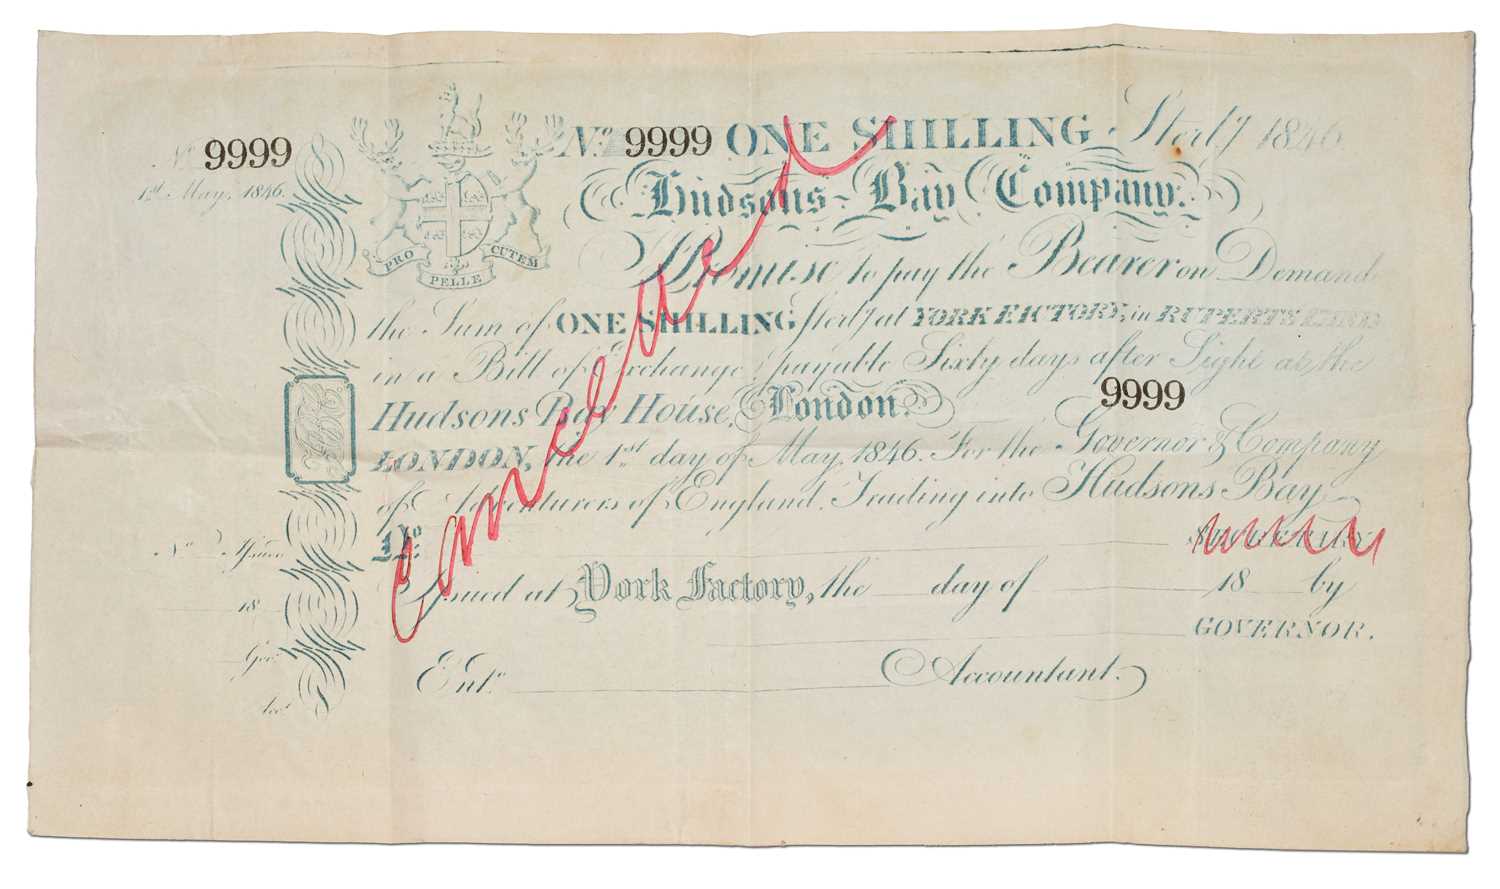 No 9999
1st May, 1846.
No 9999 ONE SHILLING Sterlg 1846
Hudsons Bay Company.
PRO PELLE CUTEM
Promise to pay the Bearer on Demand
the Sum of ONE SHILLING Sterlg at YORK FACTORY, in RUPERTS LAND
in a Bill of Exchange payable Sixty days after Sight at the
Hudsons Bay House, London.
9999
LONDON, the 1st day of May, 1846. For the Governor & Company
of Adventurers of England Trading into Hudsons Bay
No
SECRETARY
Issued at York Factory, the day of 18 by
GOVERNOR.
Entd Accountant.
No Issued
18
Govr
Acct
Cancelled